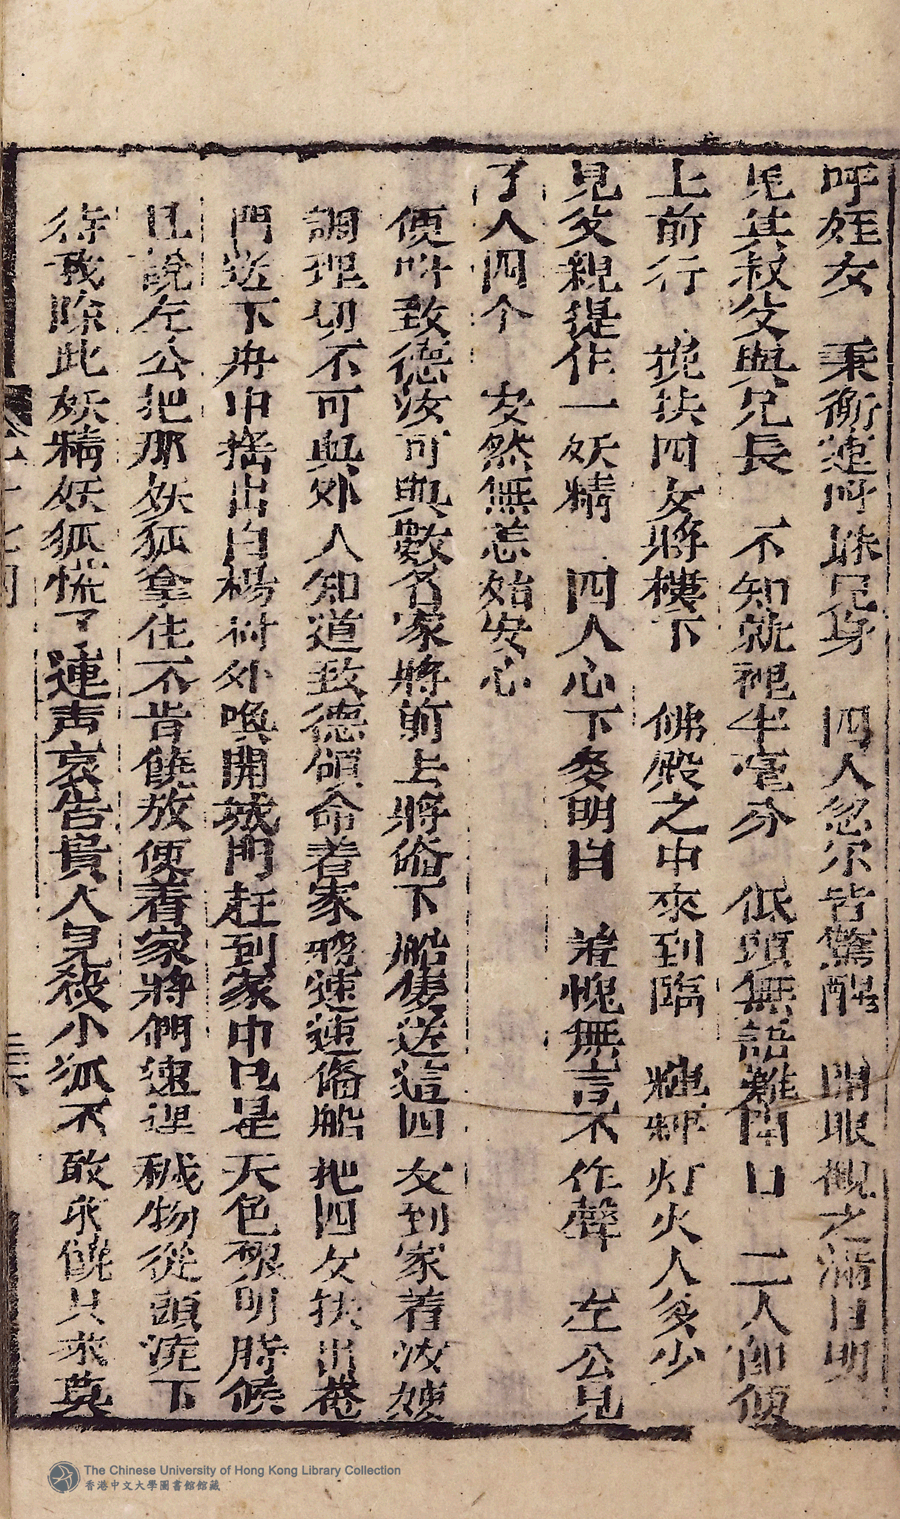 呼姪女　秉衡連呼妹兄身　四人忽尓皆驚醒　開眼觀之滿目明
見其叔父與兄長　不知就裡半毫分　低頭無語难開口　二人即便
上前行　挽扶四女將樓下　佛殿之中來到臨　輝輝灯火人多少
見父親捉住一妖精　四人心下多明白　羞愧無言不作聲　左公見
了人四个　安然無恙始安心
便叫致德汝可與數名家將前去將偹下船隻送這四女到家着汝嫂
調理切不可與外人知道致德領命着家將速速偹船把四女扶出菴
門送下舟中摇出白楊村外喚開城門赶到家中已是天色微明時候
且說左公把那妖狐拿住不肯饒放便着家將們速速穢物從頭澆下
待我除此妖精妖狐慌了連声哀告貴人見殺小狐不敢求饒只求莫
二六
The Chinese University of Hong Kong Library Collection
香港中文大學圖書館館藏